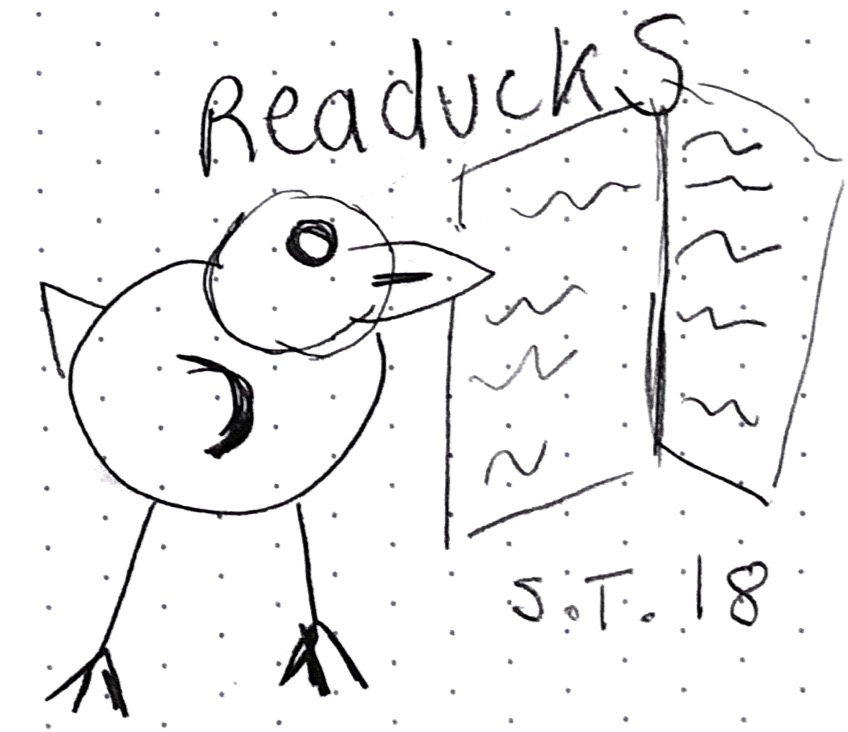 ReaducKS
S.T. 18